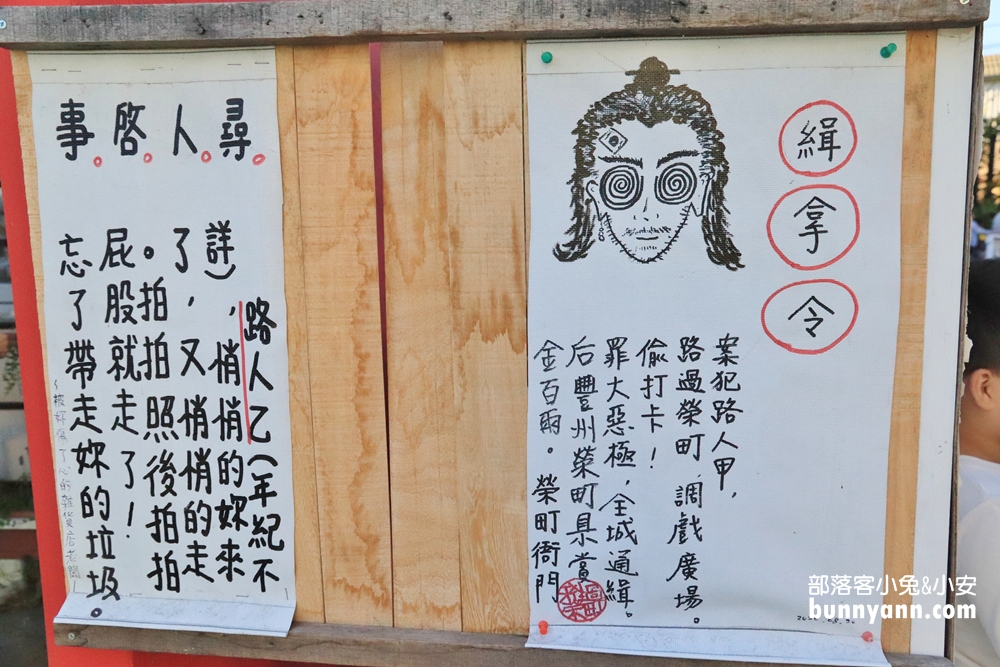 緝拿令
案犯路人甲，
路過榮町，調戲廣場。
偷打卡！
罪大惡極，全城通緝。
后豐州榮町県賞
金百兩。榮町衙門
尋人啓事
路人乙(年紀不
詳)，悄悄的妳來
了，又悄悄的走
。拍拍照後拍拍
屁股就走了！
忘了帶走妳的垃圾。
~被妳傷了心的雜貨店老闆
部落客小兔&小安
bunnyann.com